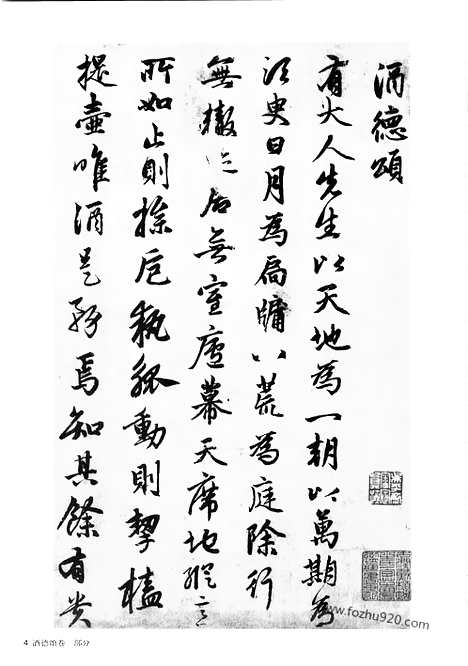 酒德頌
有大人先生以天地為一朝以萬期為
須臾日月為扃牖八荒為庭除行
無轍迹居無室廬幕天席地縱意
所如止則操卮執觚動則挈榼
提壺唯酒是務焉知其餘有貴
www.fozhu920.com
4 酒德頌卷 部分